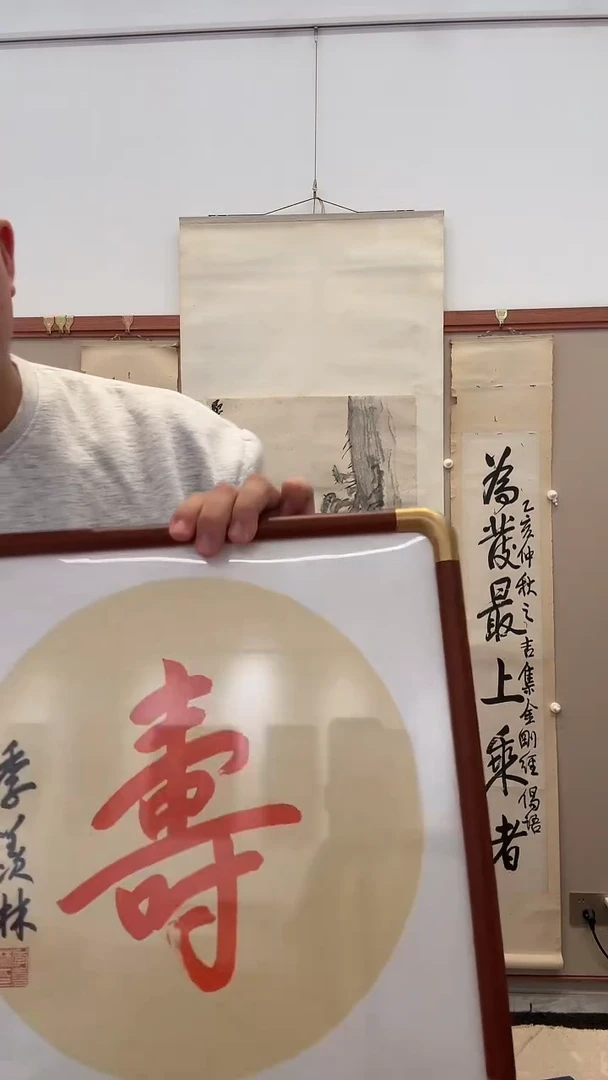 壽
季羡林
為發最上乘者
乙亥仲秋之吉集金剛經偈語